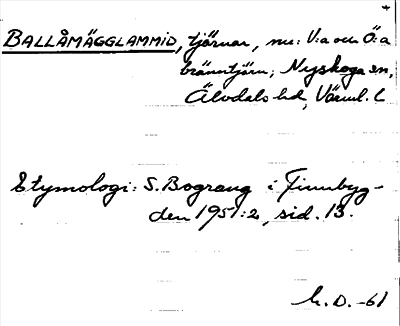 BALLÅMÄGGLAMMID, tjärnar, nu: V:a och Ö:a
bränntjärn; Nyskoga sn,
Älvdals hd, Värml. l
Etymologi: S. Bograng i Finnbyg-
den 1951:2, sid. 13.
h.D. -61